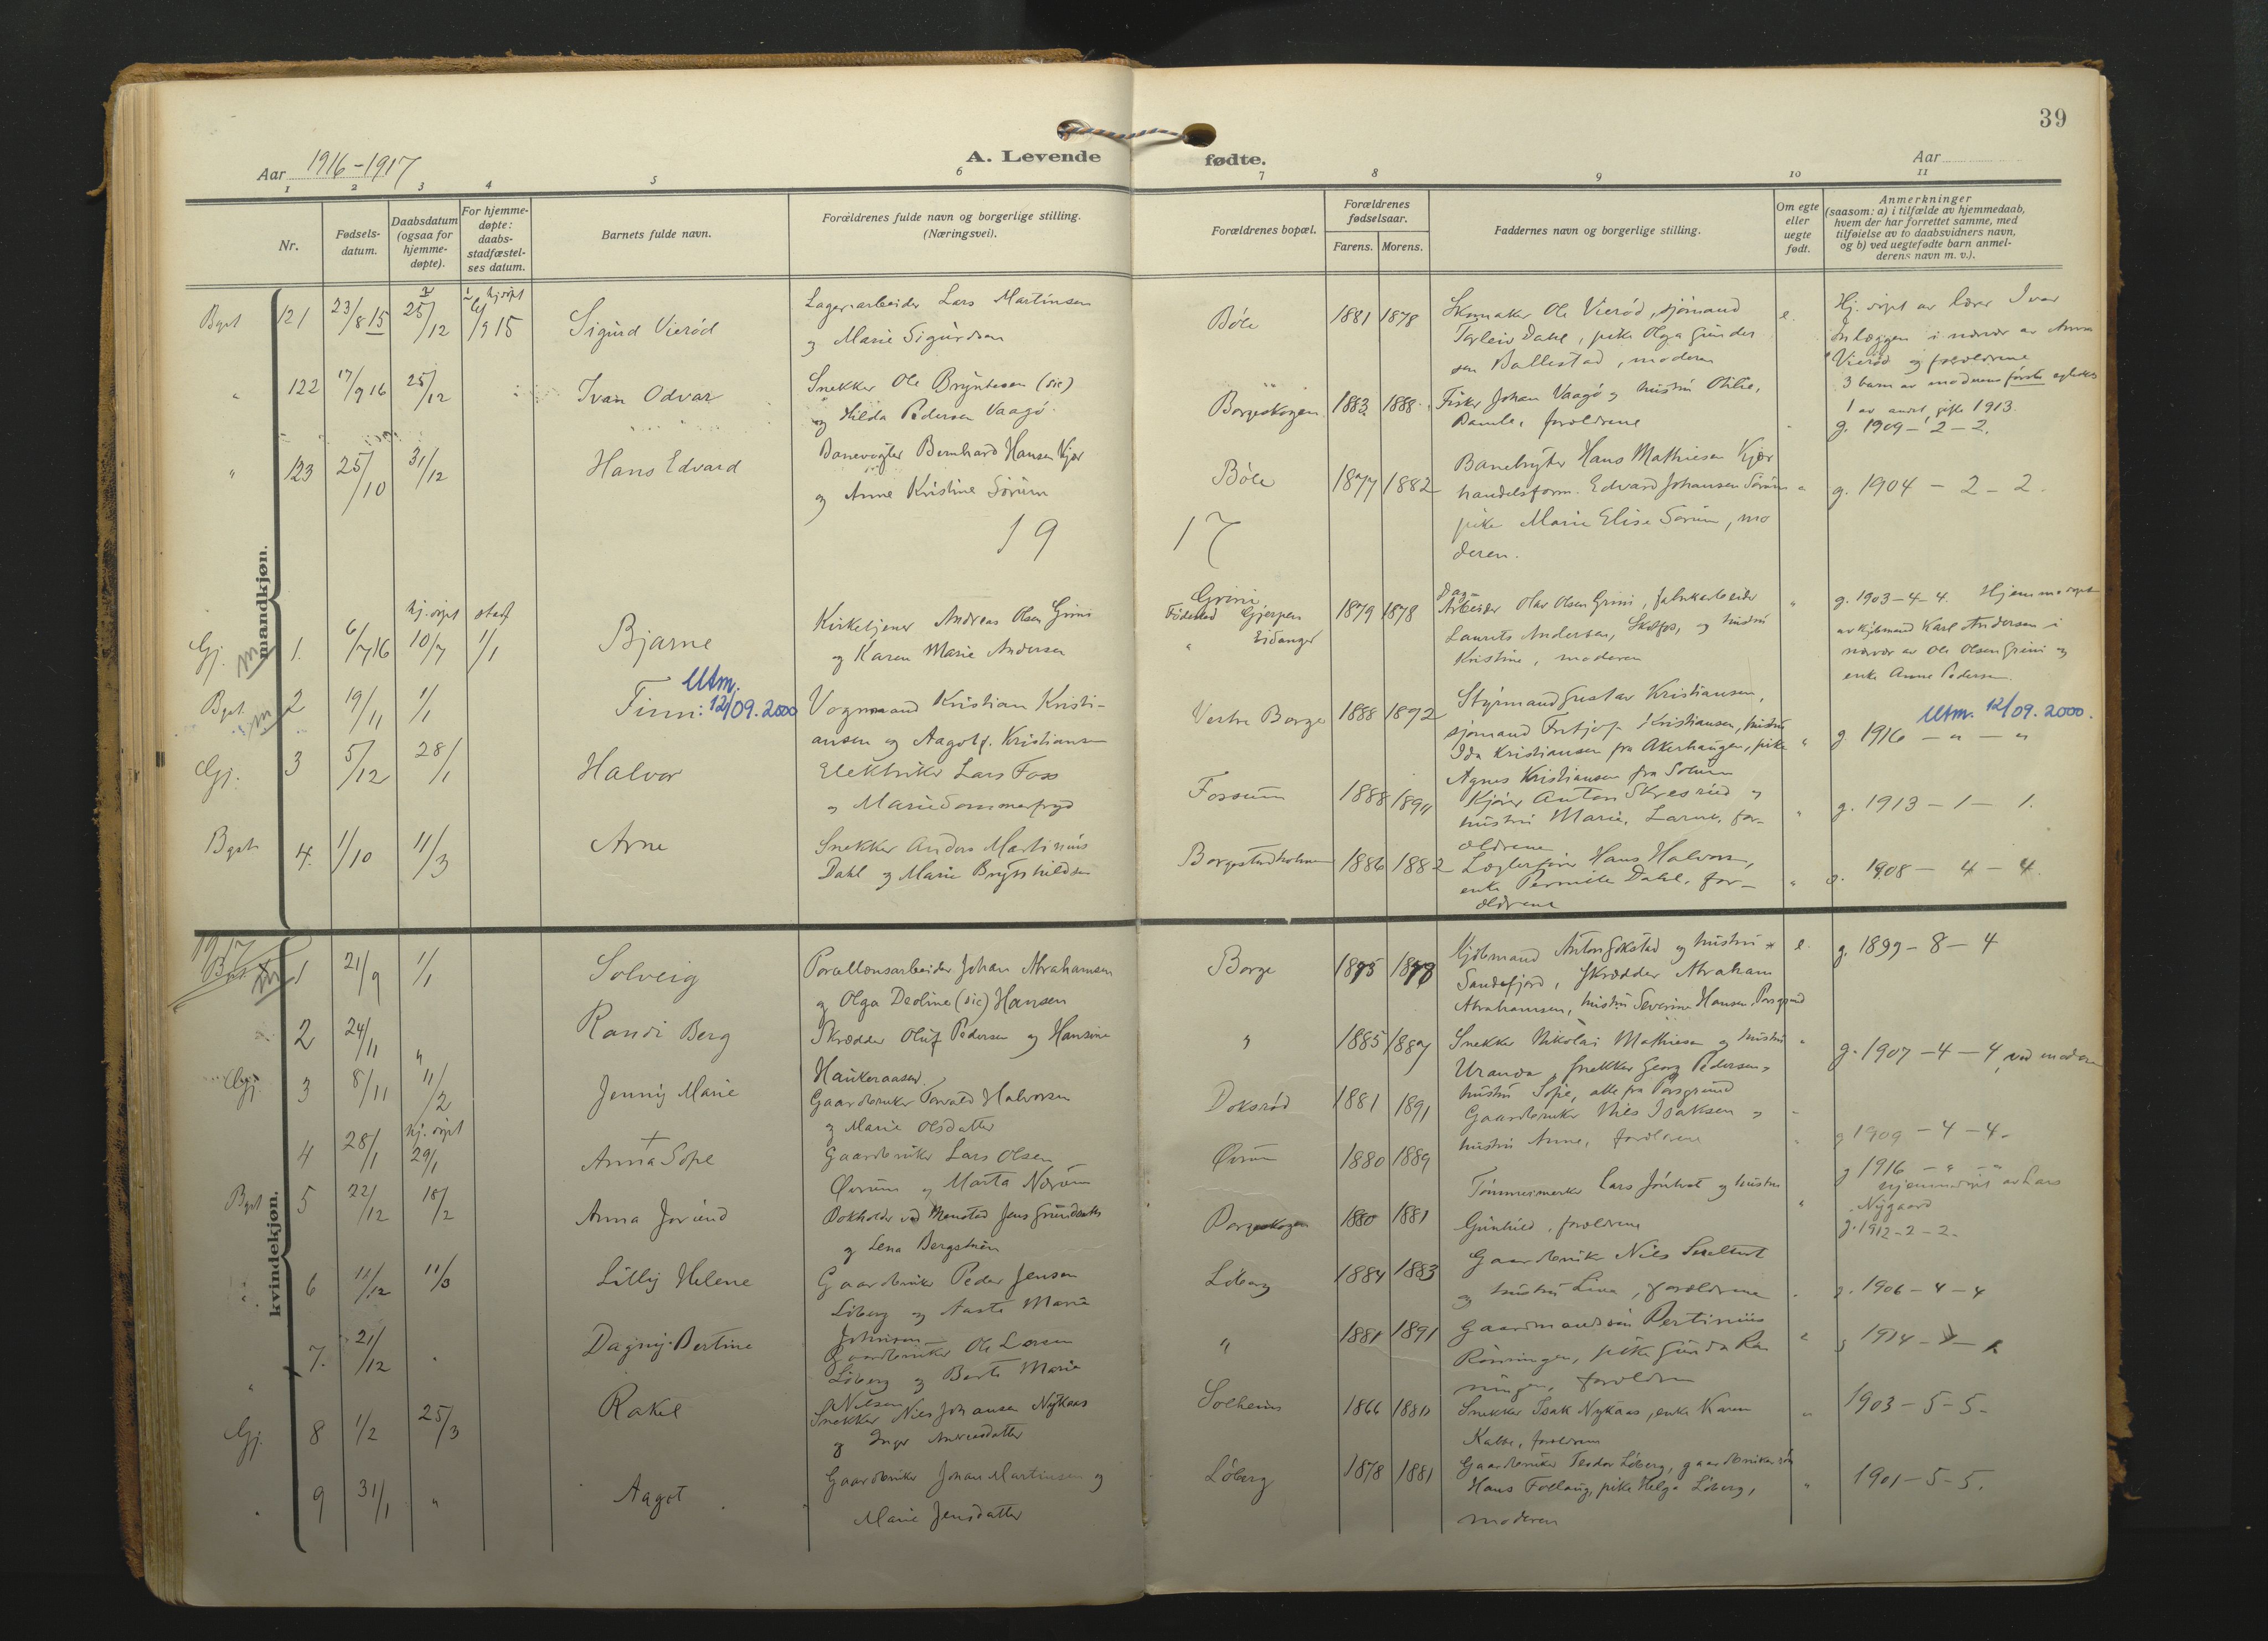 39
Aar 1916-1917
A. Levende fødte.
Aar
1 2 3 4 5 6 7 8 9 10 11
Nr.
Fødsels-
datum.
Daabsdatum
(ogsaa for
hjemme-
døpte).
For hjemme-
døpte:
daabs-
stadfæstel-
ses datum.
Barnets fulde navn.
Forældrenes fulde navn og borgerlige stilling.
(Næringsvei).
Forældrenes bopæl.
Forældrenes
fødselsaar.
Farens. Morens.
Faddernes navn og borgerlige stilling.
Om egte
eller
uegte
født.
Anmerkninger
(saasom: a) i tilfælde av hjemmedaab,
hvem der har forrettet samme, med
tilføielse av to daabsvidners navn,
og b) ved uegtefødte barn anmel-
derens navn m. v.).
mandkjøn.
Bgst 121 23/8 15 25/12 hj.døpt 9 15
Sigurd Vierød
Lagerarbeider Lars Martinsen
og Marie Sigurdsen
Bøle 1881 1878
Skomaker Ole Vierød, sjømand
Torleiv Dahl, pike Olga Gunder
sen Ballestad, moderen
e.
Hj. døpt av lærer Ivar
i nærvær av Anna
Vierød og forældrene
3 barn av moderens første egteskab
1 av andet, gift 1913.
" 122 17/9 16 25/12
Ivan Odvar
Snekker Ole Bryntesen (sic)
og Hilda Pedersen Vaagø
Borgeskogen 1883 1888
Fisker Johan Vaagø og hustru Otilie,
Bamle, forældrene
g. 1909 - 2 - 2.
" 123 25/10 31/12
Hans Edvard
Banevogter Bernhard Hansen Kjær
og Anne Kristine Sørum
Bøle 1877 1882
Banevogter Hans Mathiesen Kjær
handelsform. Edvard Johansen Sørum
pike Marie Elise Sørum, mo
deren.
" g. 1904 - 2 - 2.
19 17
Gj. 1. 6/7 16 hj.døpt 10/7 stadf 1/1
Bjarne
Kirketjener Andreas Olsen Grini
og Karen Marie Andersen
Grini
Fødested Gjerpen
" Eidanger
1879 1878
Dag-
Arbeider Olav Olsen Grini, fabrikarbeider
Laurits Andersen, Skotfos, og hustru
Kristine, moderen
" g. 1903-4-4. Hjemmedøpt
av Kjøbmand Karl Andersen i
nærvær av Ole Olsen Grini og
enke Anne Pedersen.
Bgst. 2 19/11 1/1
Utm.
Finn: 12/09.2000
Vognmand Kristian Kristi-
ansen og Aagot Kristiansen
Vestre Borge 1888 1892
Styrmand Gustav Kristiansen,
sjømand Fritjof Kristiansen, hustru
Ida Kristiansen fra Akerhaugen, pike
Agnes Kristiansen fra Solum
Utm. 12/09.2000.
" g. 1916 - " - "
Gj. 3 5/12 28/1
Halvor
Elektriker Lars Foss
og Marie Sommerfryd
Fossum 1888 1891
Kjører Anton Skresrud og
hustru Marie, Larvik, for-
ældrene
" g. 1913 - 1 - 1.
Bgst. 4. 1/10 11/3
Arne
Snekker Anders Martinius
Dahl og Marie Brynhildsen
Borgestadholmen 1886 1882
Hans Halvorsen,
enke Pernille Dahl, for-
ældrene
" g. 1908 - 4 - 4.
kvindekjøn.
1917
Bgst. 1 21/9 1/1
Solveig
Porcellænsarbeider Johan Abrahamsen
og Olga Deoline (sic) Hansen
Borge 1875 1878
Kjøbmand Anton Gokstad og hustru
Sandefjord, Skrædder Abraham
Abrahamsen, hustru Severine Hansen, Porsgrund
e. g. 1899 - 8 - 4
2 24/11 "
Randi Berg
Skrædder Oluf Pedersen og Hansine
Haukeraasen
" 1885 1887
Snekker Nikolai Mathisen og hustru
Uranda, snekker Georg Pedersen,
hustru Sofie, alle fra Porsgrund
g. 1907 - 4 - 4, ved moderen
Gj. 3 8/11 11/2
Jenny Marie
Gaardbruker Torvald Halvorsen
og Marie Olsdatter
Doksrød 1881 1891
Gaardbruker Nils Isaksen og
hustru Anne, forældrene
g 1909 - 4 - 4.
4 28/1 hj.døpt 29/1
Anna Sofie
Gaardbruker Lars Olsen
Øvrum og Marta Nærum
Øvrum 1880 1889
g 1916 - " - "
hjemmedøpt av Lars
Nygaard
Bgst 5 22/12 18/2
Anna Jorund
Bokholder ved Menstad Jens Gundersen
og Lena Bergstrøm
Borgeskogen 1880 1881
Tømmermerker Lars Jønholt og hustru
Gunhild, forældrene
g. 1912-2-2.
" 6 11/12 11/3
Lilly Helene
Gaardbruker Peder Jensen
Løberg og Aaste Marie
Johnsen
Løberg 1884 1883
Gaardbruker Nils
og hustru Lina, forældrene
g. 1906 - 4 - 4
7. 21/12 "
Dagny Bertine
Gaardbruker Ole Larsen
Løberg og Berte Marie
Nilsen
" 1881 1891
Gaardmandssøn Bertinius
Rønningen, pike Gunda Røn
ningen, forældrene
g 1914 - 1 - 1.
Gj. 8 1/2 25/3
Rakel
Snekker Nils Johansen Nykaas
og Inger Andreasdatter
Solheim 1866 1880
Snekker Isak Nykaas, enke Karen
Kabbe, forældrene
" 1903 - 5 - 5.
" 9 31/1 "
Aagot
Gaardbruker Johan Martinsen og
Marie Jensdatter
Løberg 1878 1881
Gaardbruker Teodor Løberg, gaardbrukersøn
Hans Follaug, pike Helga Løberg,
moderen
" 1901 - 5 - 5.